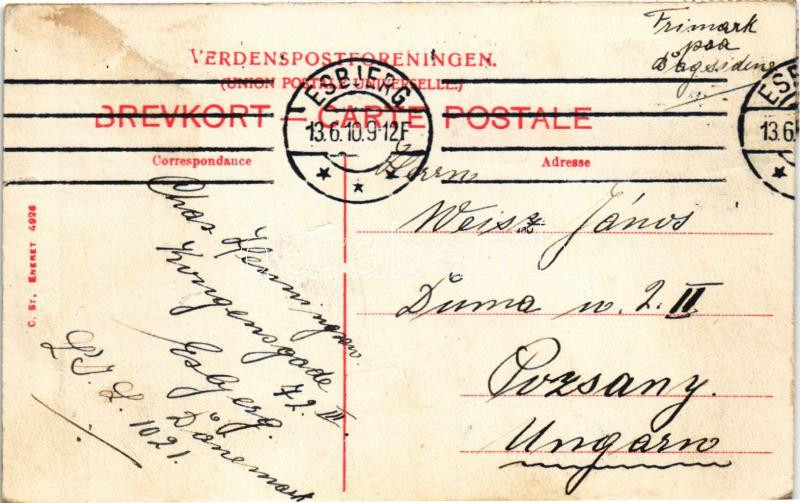 Frimark
paa
Bagsiden
VERDENSPOSTFORENINGEN.
(UNION POSTALE UNIVERSELLE.)
BREVKORT – CARTE POSTALE
ESBJERG
13.6.10.9-12F
ESB
13.6
Correspondance
Adresse
Herrn
Weisz János
Duma u. 2. II
Pozsany.
Ungarn
Chas Henningsen
Kongensgade
72 III
Esbjerg.
Dänemark
L. T. L. 1021.
C. ST. ENERET 4926